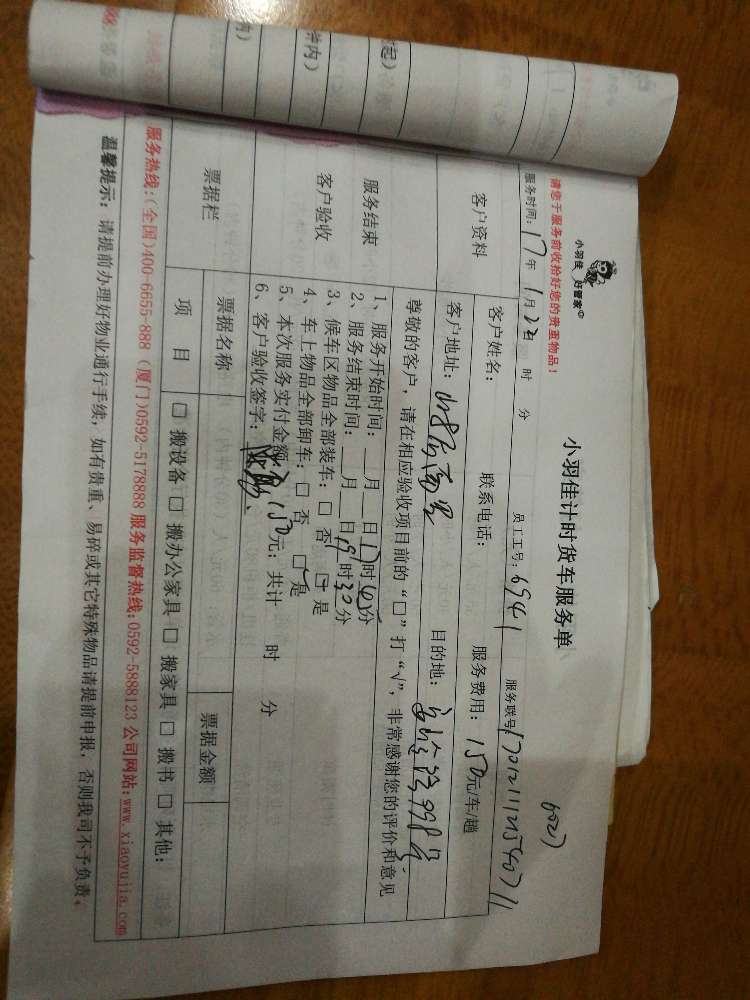 请您于服务前收拾好您的贵重物品！
小羽佳 好管家
小羽佳计时货车服务单
6027
服务时间：17年 1月22日 时 分 员工工号：6941 服务联号
客户资料
客户姓名： 联系电话： 服务费用：150元/车/趟
客户地址： 目的地：
尊敬的客户，请在相应验收项目前的“□”打“√”，非常感谢您的评价和意见
服务结束
客户验收
1、服务开始时间：__月__日17时40分
2、服务结束时间：__月__日19时30分
3、候车区物品全部装车：□ 否 □ 是
4、车上物品全部卸车：□ 否 □ 是
5、本次服务实付金额150元；共计 时 分
6、客户验收签字：
票据栏
票据名称 票据金额
项 目 □ 搬设备 □ 搬办公家具 □ 搬家具 □ 搬书 □ 其他：
服务热线：(全国)400-6655-888 (厦门)0592-5178888 服务监督热线：0592-5888123 公司网站：www.xiaoyujia.com
温馨提示：请提前办理好物业通行手续，如有贵重、易碎或其它特殊物品请提前申报，否则我司不予负责。